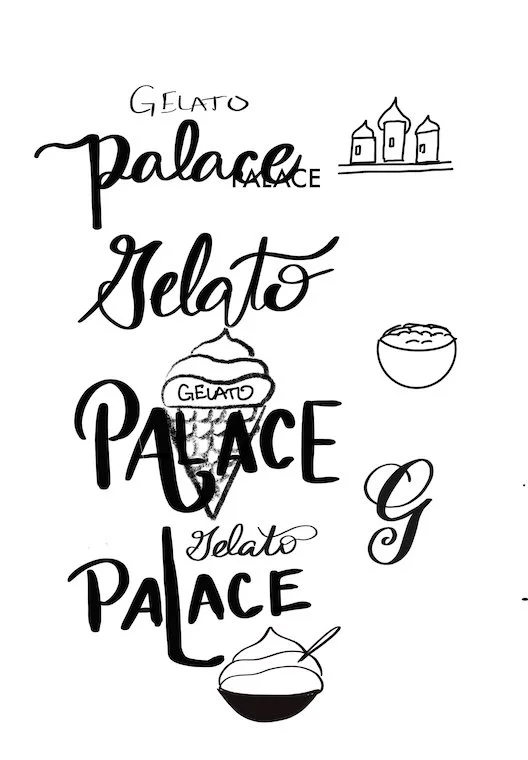 GELATO
palace
PALACE
Gelato
GELATO
PALACE
G
Gelato
PALACE